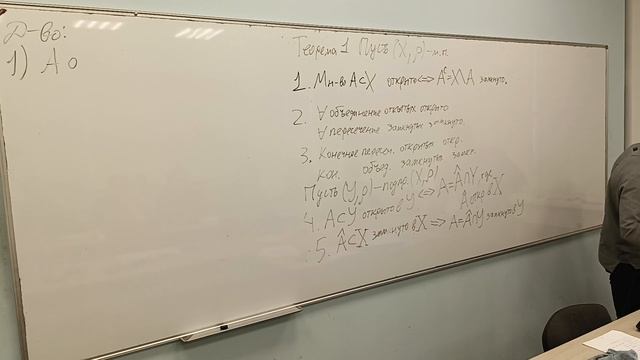 Д-во:
1) А о
Теорема 1 Пусть (X, ρ) – м.п.
1. Мн-во A⊂X открыто ⟺ Aᶜ=X\A замкнуто.
2. ∀ объединение открытых открыто
∀ пересечение замкнутых замкнуто.
3. Конечное пересеч. открытых откр.
Кон. объед. замкнутых замк.
Пусть (Y, ρ) – подпр. (X, ρ)
4. A⊂Y открыто в Y ⟺ A=Â∩Y, где
Â откр. в X
5. Â⊂X замкнуто в X ⟹ A=Â∩Y замкнуто в Y